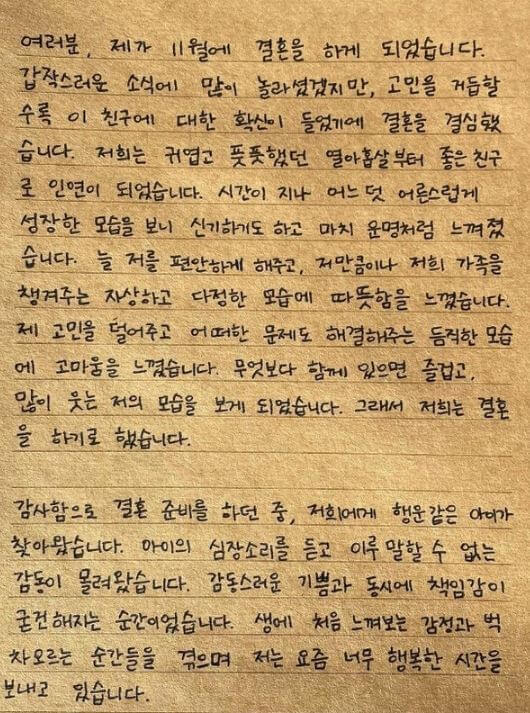 여러분, 제가 11월에 결혼을 하게 되었습니다.
갑작스러운 소식에 많이 놀라셨겠지만, 고민을 거듭할
수록 이 친구에 대한 확신이 들었기에 결혼을 결심했
습니다. 저희는 귀엽고 풋풋했던 열아홉살부터 좋은 친구
로 인연이 되었습니다. 시간이 지나 어느덧 어른스럽게
성장한 모습을 보니 신기하기도 하고 마치 운명처럼 느껴졌
습니다. 늘 저를 편안하게 해주고, 저만큼이나 저희 가족을
챙겨주는 자상하고 다정한 모습에 따뜻함을 느꼈습니다.
제 고민을 덜어주고 어떠한 문제도 해결해주는 듬직한 모습
에 고마움을 느꼈습니다. 무엇보다 함께 있으면 즐겁고,
많이 웃는 저의 모습을 보게 되었습니다. 그래서 저희는 결혼
을 하기로 했습니다.
감사함으로 결혼 준비를 하던 중, 저희에게 행운같은 아이가
찾아왔습니다. 아이의 심장소리를 듣고 이루 말할 수 없는
감동이 몰려왔습니다. 감동스러운 기쁨과 동시에 책임감이
굳건해지는 순간이었습니다. 생에 처음 느껴보는 감정과 벅
차오르는 순간들을 겪으며 저는 요즘 너무 행복한 시간을
보내고 있습니다.